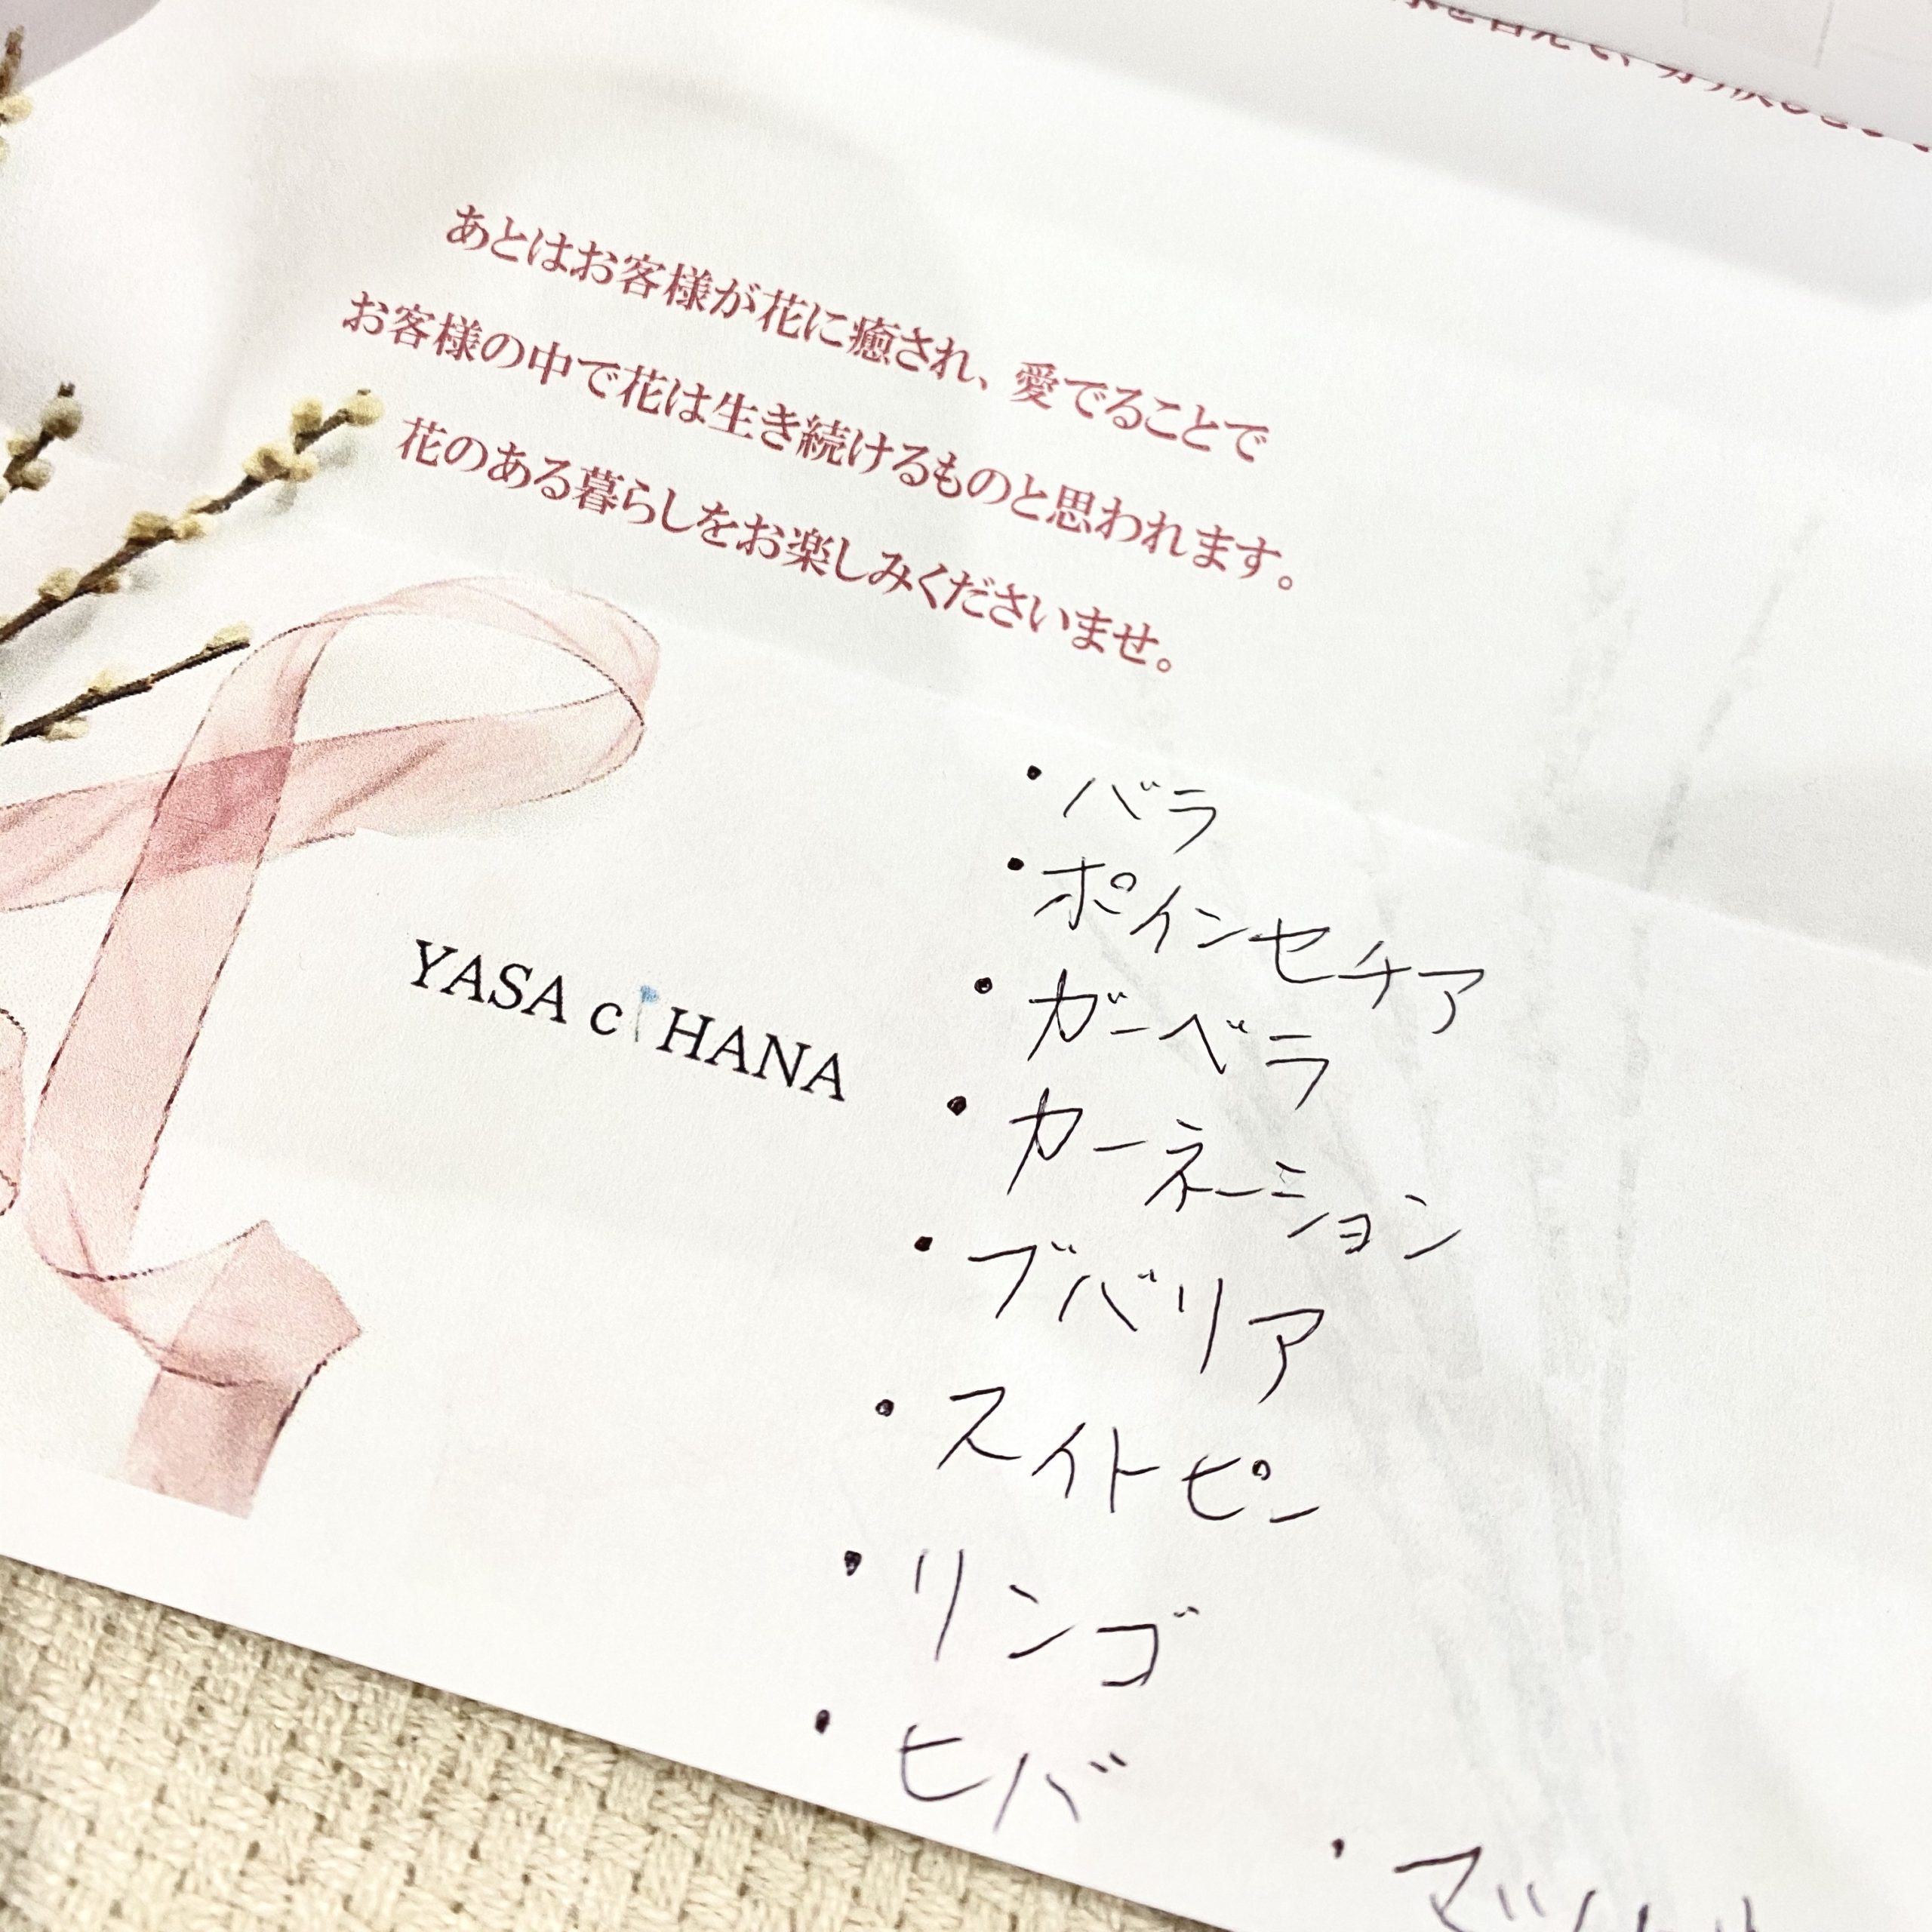 あとはお客様が花に癒され、愛でることで
お客様の中で花は生き続けるものと思われます。
花のある暮らしをお楽しみくださいませ。
・バラ
・ポインセチア
YASA c HANA
・ガーベラ
・カーネーション
・ブバリア
・スイトピン
・リンゴ
・ヒバ